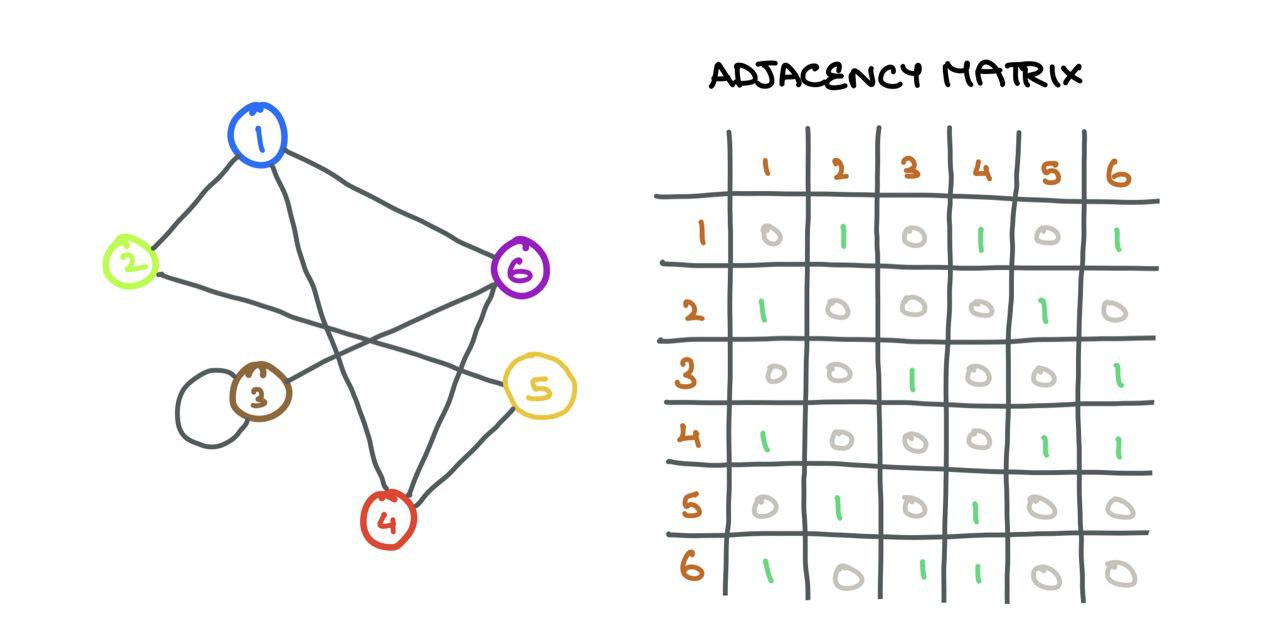 ADJACENCY MATRIX
1
2
6
3
5
4
1 2 3 4 5 6
1 0 1 0 1 0 1
2 1 0 0 0 1 0
3 0 0 1 0 0 1
4 1 0 0 0 1 1
5 0 1 0 1 0 0
6 1 0 1 1 0 0